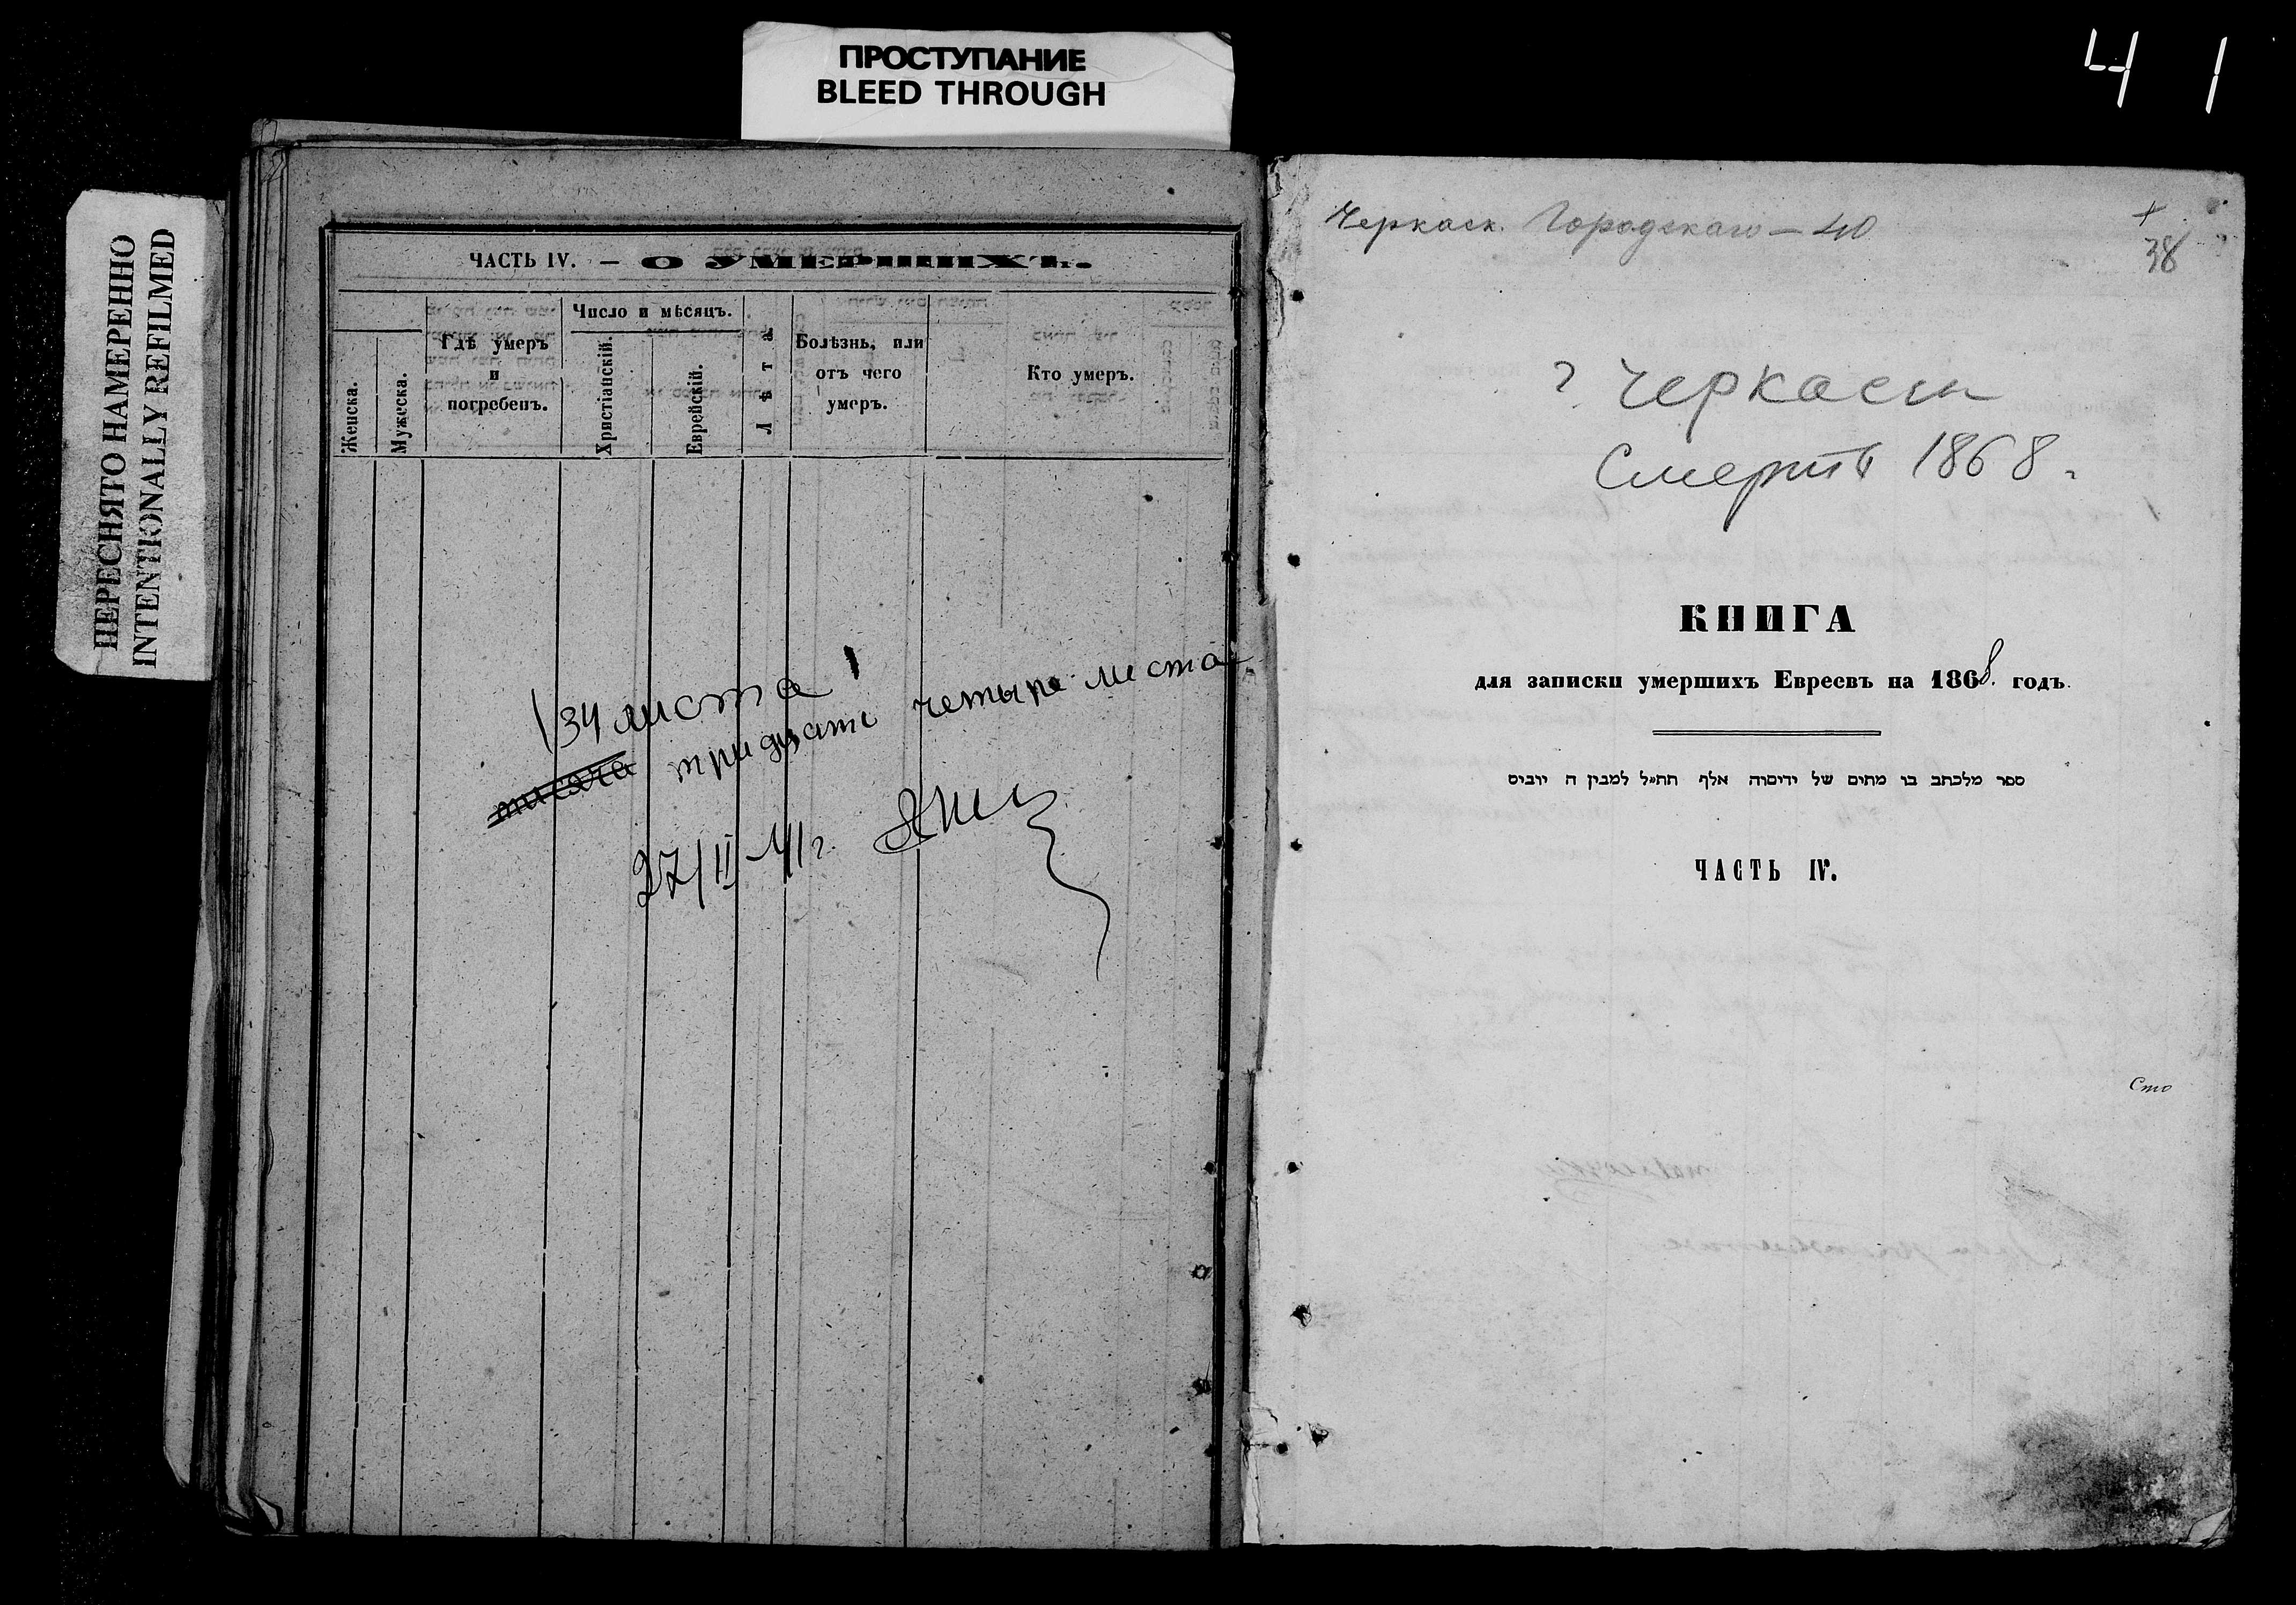 ПРОСТУПАНИЕ
BLEED THROUGH
4 1
ПЕРЕСНЯТО НАМЕРЕННО
INTENTIONALLY REFILMED
ЧАСТЬ IV. — О УМЕРШИХЪ.
Женска.
Мужеска.
Гдѣ умеръ
и
погребенъ.
Число и мѣсяцъ.
Христіанскій.
Еврейскій.
Лѣта.
Болѣзнь, или
отъ чего
умеръ.
Кто умеръ.
34 листа
тридцать четыре листа
27/II 41 г.
Черкаск. Городскаго — 40
38
г. Черкассы
Смерть 1868 г.
КНИГА
для записки умершихъ Евреевъ на 1868. годъ.
ספר מלכתב בו מתים של
ЧАСТЬ IV.
Сто